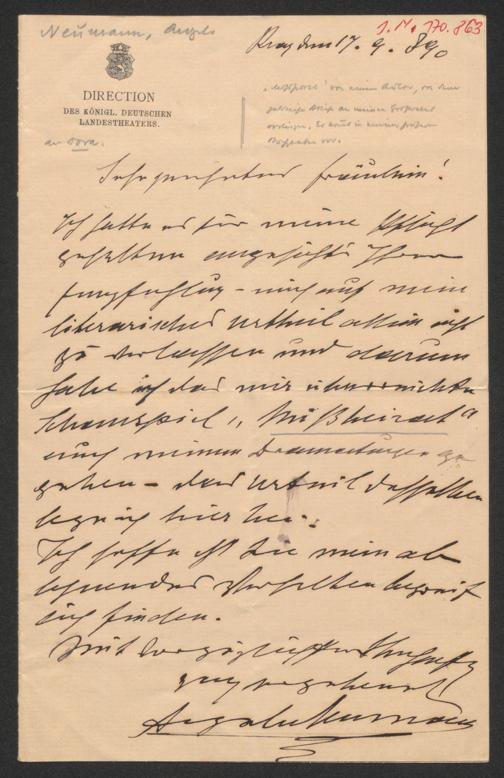 Neumann, Angelo
I.N. 170.863
Prag den 17. 9. 890
DIRECTION
DES KÖNIGL. DEUTSCHEN
LANDESTHEATERS.
an Dora.
von einem Autor, von dem
Sehr geehrtes Fräulein!
Ich hatte es für meine Pflicht
gehalten angesichts Ihrer
Empfehlung – mich auf mein
literarisches Urtheil allein nicht
zu verlassen und darum
habe ich das mir überreichte
Schauspiel „Mußheirat“
auch meinem Dramaturgen ge
geben – das Urteil desselben
lege ich hier bei.
Ich hoffe daß Sie mein ab
lehnendes Verhalten begreif
lich finden.
Mit vorzüglicher Hochachtg
ganz ergebenst
Angelo Neumann